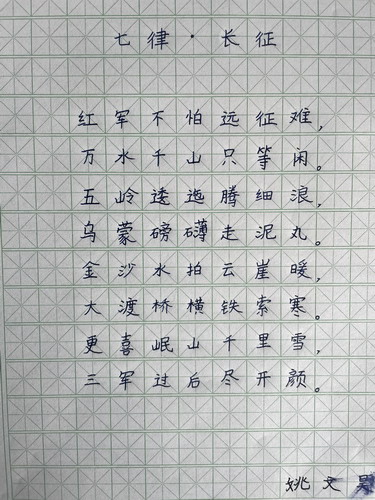 七律·长征
红军不怕远征难，
万水千山只等闲。
五岭逶迤腾细浪，
乌蒙磅礴走泥丸。
金沙水拍云崖暖，
大渡桥横铁索寒。
更喜岷山千里雪，
三军过后尽开颜。
姚文昊